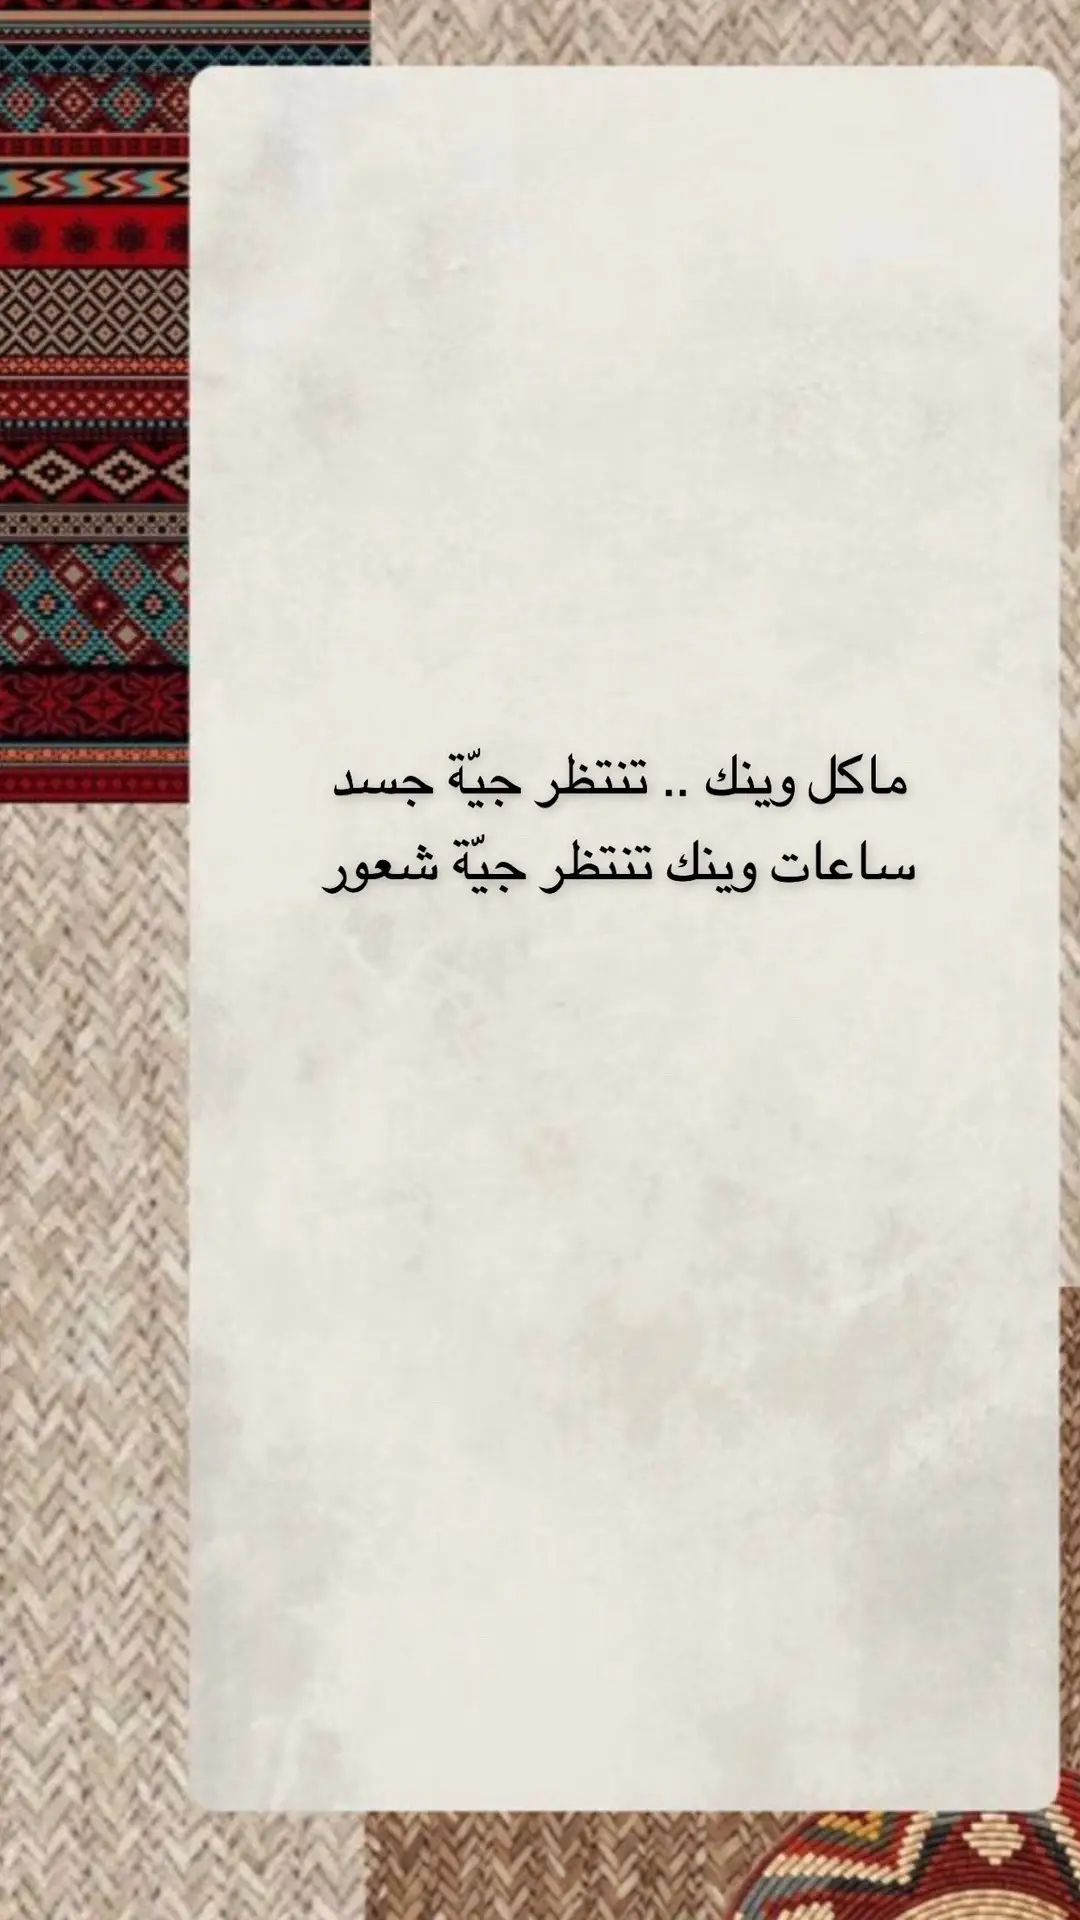 ماكل وينك .. تنتظر جيّة جسد
ساعات وينك تنتظر جيّة شعور